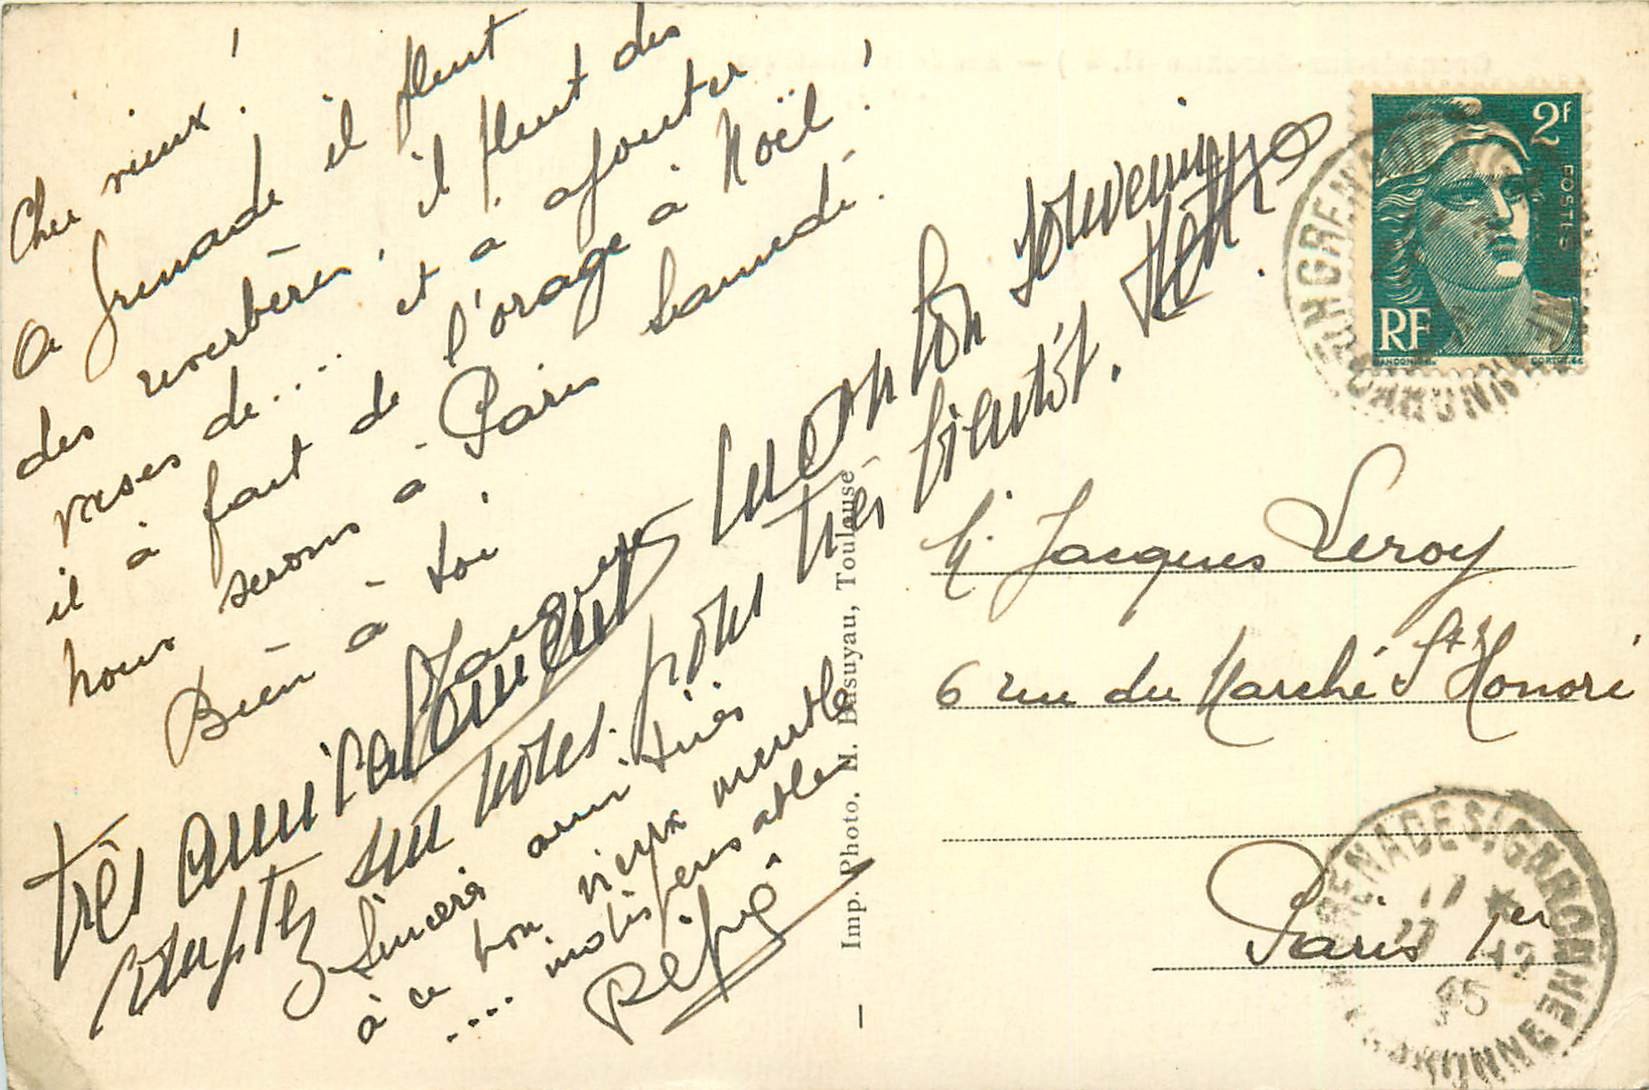 Cher vieux !
A Grenade il pleut
des reverbères. il pleut des
vases de... et a ajouter
il à fait de l'orage à Noël !
nous serons à Paris Samedi.
Bien à toi
Jacques
très amicalement un bon Souvenir
comptez sur nous pour très bientôt.
Sincères amitiés
à ce bon vieux meuble
.... indispensable
Pépé
Imp. Photo. H. Basuyau, Toulouse
2F
POSTES
RF
GANDON
CORTOT
M. Jacques Leroy
6 rue du Marché St Honoré
Paris 1er
GRENADE S/GARONNE
17 *
27 -12
45
HTE GARONNE